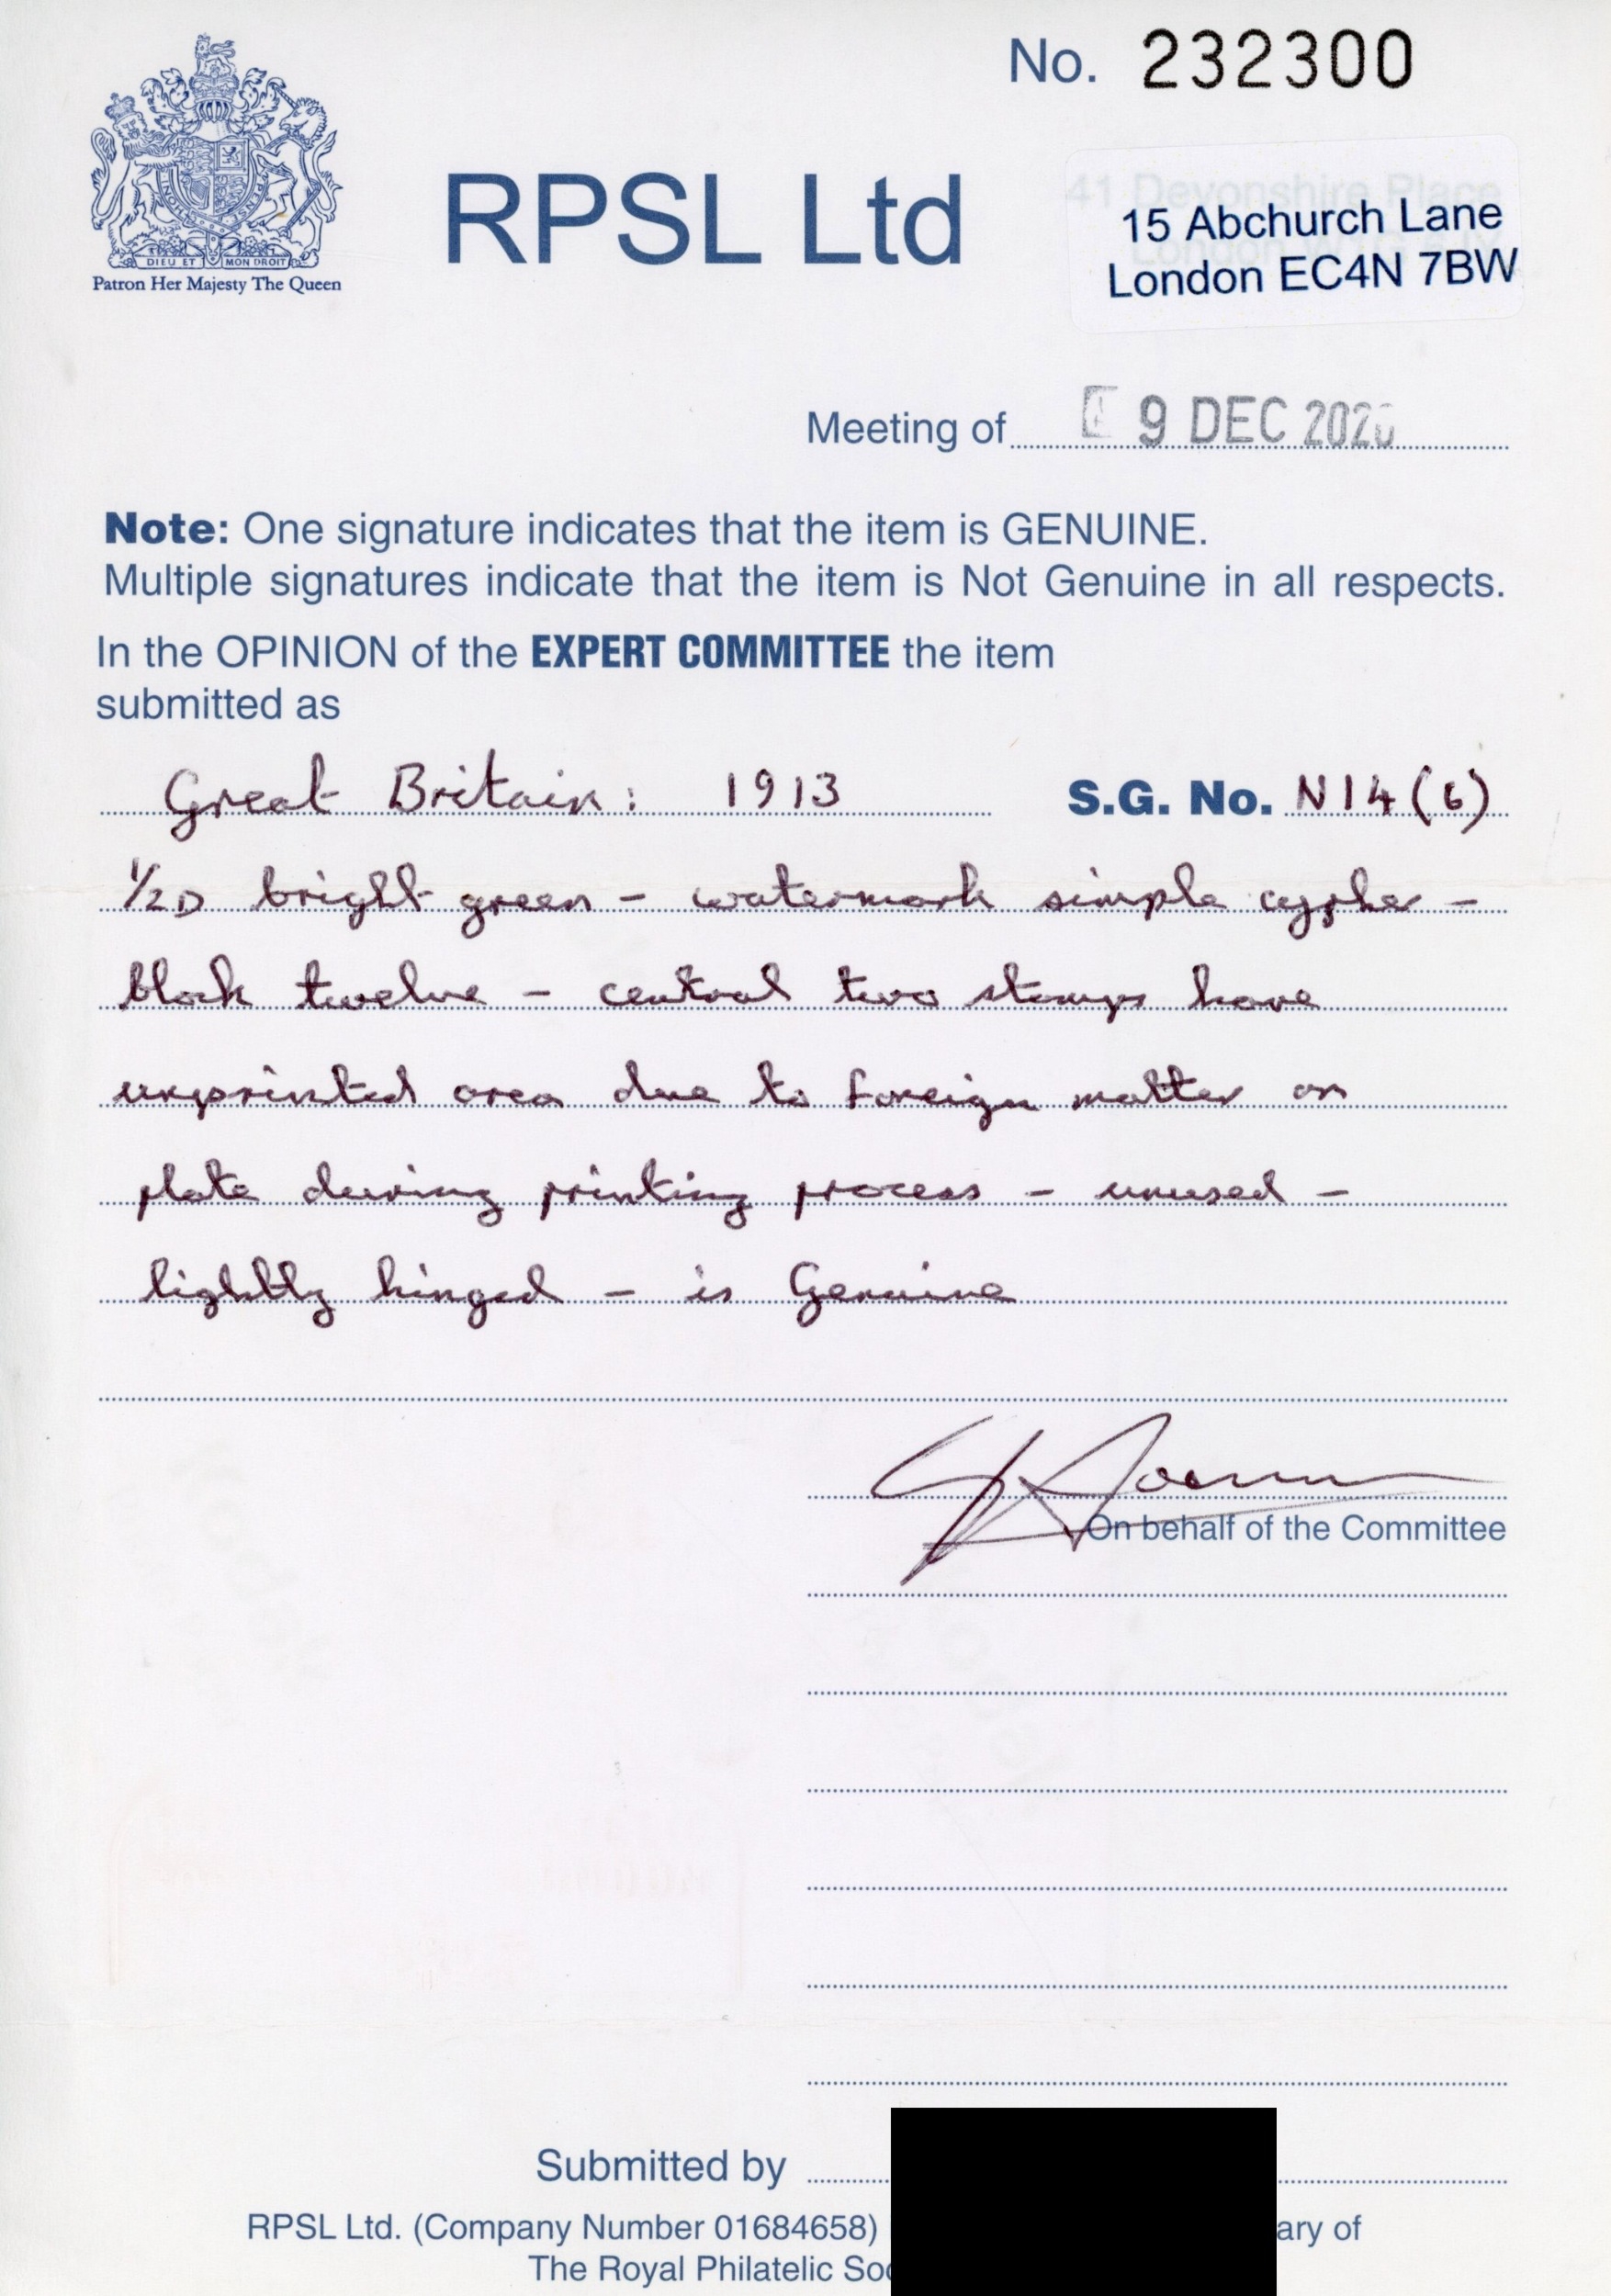 No. 232300
RPSL Ltd
41 Devonshire Place
15 Abchurch Lane
London EC4N 7BW
DIEU ET MON DROIT
Patron Her Majesty The Queen
Meeting of 9 DEC 2020
Note: One signature indicates that the item is GENUINE.
Multiple signatures indicate that the item is Not Genuine in all respects.
In the OPINION of the EXPERT COMMITTEE the item
submitted as
Great Britain: 1913 S.G. No. N14(6)
1/2D bright green - watermark simple cypher -
block twelve - central two stamps have
unprinted area due to foreign matter on
plate during printing process - unused -
lightly hinged - is Genuine
On behalf of the Committee
Submitted by
RPSL Ltd. (Company Number 01684658) ary of
The Royal Philatelic Soc